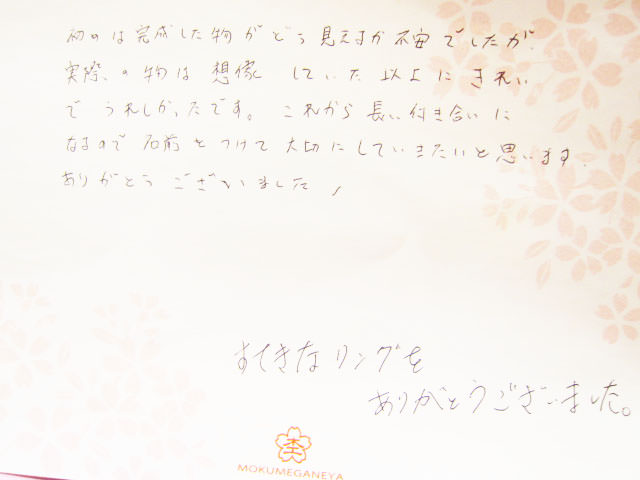 初めは完成した物がどう見えるか不安でしたが、
実際の物は想像していた以上にきれい
でうれしかったです。これから長い付き合いに
なるので名前をつけて大切にしていきたいと思います。
ありがとうございました!
すてきなリングを
ありがとうございました。
杢
MOKUMEGANEYA